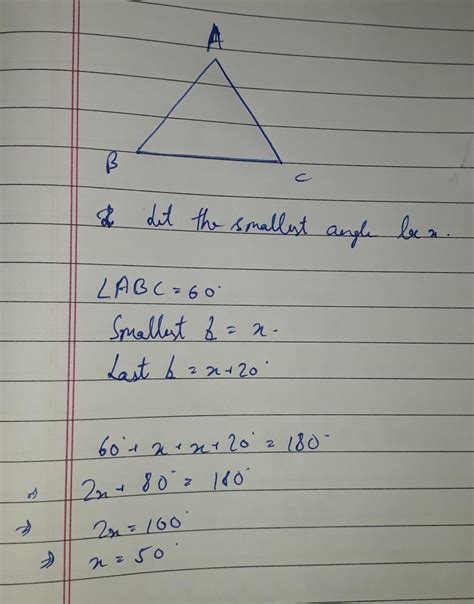 A
B
C
Let the smallest angle be x.
∠ABC = 60°
Smallest ∠ = x.
Last ∠ = x+20°
60°+ x + x + 20° = 180°
⇒ 2x + 80° = 180°
⇒ 2x = 100°
⇒ x = 50°